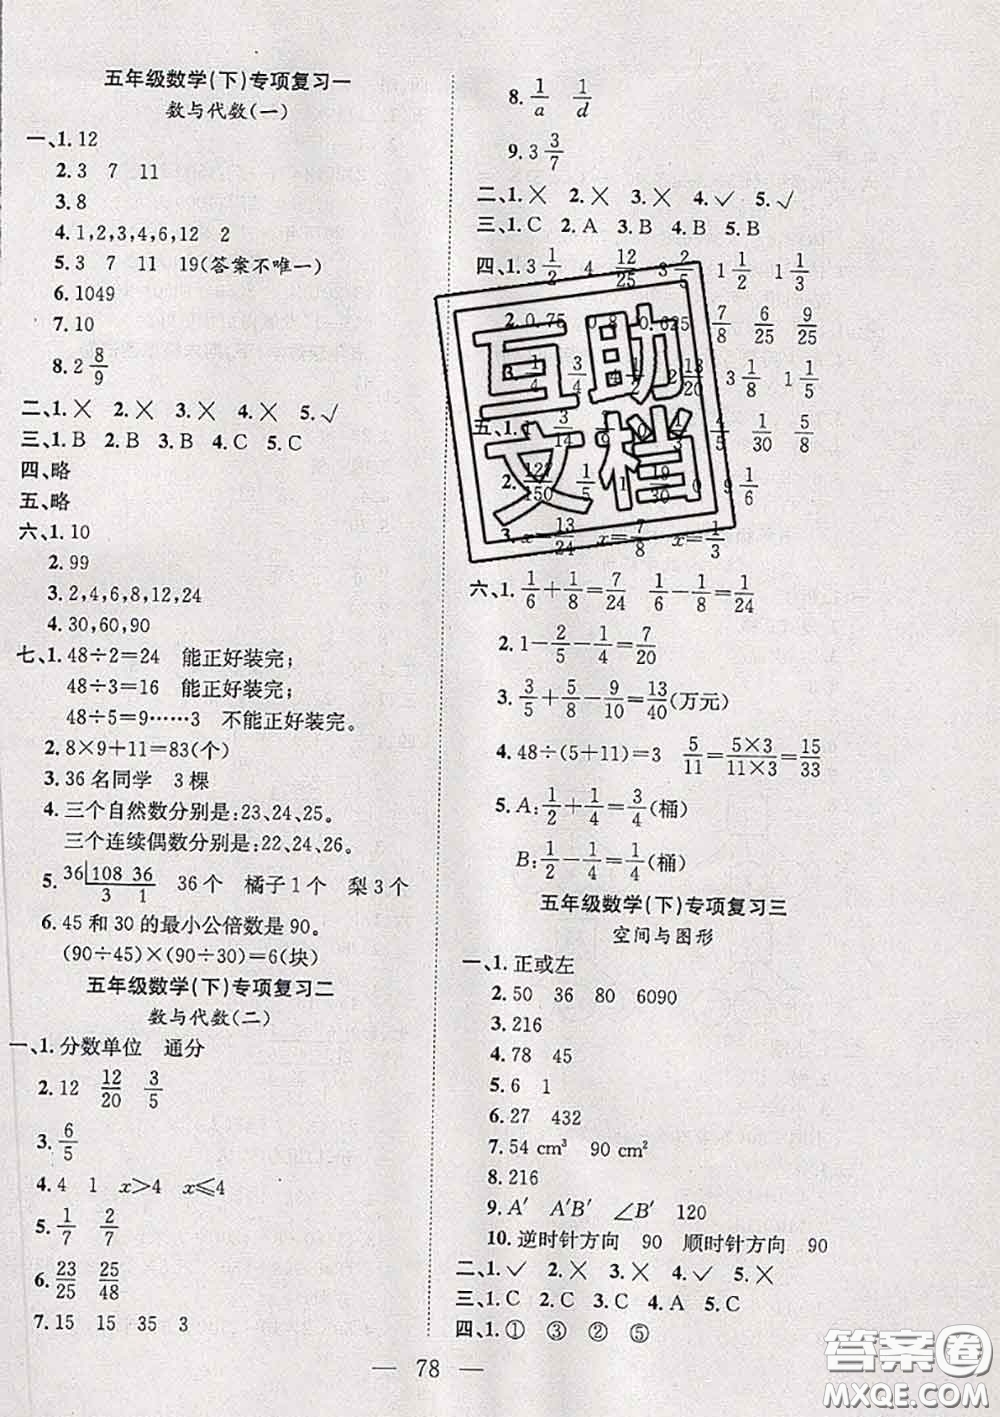 五年级数学(下)专项复习一
数与代数(一)
一、1. 12
2. 3 7 11
3. 8
4. 1,2,3,4,6,12 2
5. 3 7 11 19(答案不唯一)
6. 1049
7. 10
8. 2 8/9
二、1. ✕ 2. ✕ 3. ✕ 4. ✕ 5. ✓
三、1. B 2. B 3. B 4. C 5. C
四、略
五、略
六、1. 10
2. 99
3. 2,4,6,8,12,24
4. 30,60,90
七、1. 48÷2=24 能正好装完;
48÷3=16 能正好装完;
48÷5=9……3 不能正好装完。
2. 8×9+11=83(个)
3. 36名同学 3棵
4. 三个自然数分别是:23,24,25。
三个连续偶数分别是:22,24,26。
5. 36 108 36 36个 橘子1个 梨3个
3 1
6. 45和30的最小公倍数是90。
(90÷45)×(90÷30)=6(块)
五年级数学(下)专项复习二
数与代数(二)
一、1. 分数单位 通分
2. 12 12/20 3/5
3. 6/5
4. 4 1 x>4 x⩽4
5. 1/7 2/7
6. 23/25 25/48
7. 15 15 35 3
8. 1/a 1/d
9. 3 3/7
二、1. ✕ 2. ✕ 3. ✕ 4. ✓ 5. ✓
三、1. C 2. A 3. B 4. B 5. B
四、1. 3 1/2 4 12/25 3 2/5 1 1/2 1 1/3
2. 0.75 0.8 0.625 7/8 6/25 9/25
3. 3/4 13/20 3 1/8 1 1/5
五、1. 3/14 4/5 1/30 5/8
2. 122/150 1/5 19/30 1/6
3. x=13/24 x=7/8 x=1/3
六、1. 1/6+1/8=7/24 1/6-1/8=1/24
2. 1-2/5-1/4=7/20
3. 3/5+5/8-9/10=13/40(万元)
4. 48÷(5+11)=3 5/11=5×3/11×3=15/33
5. A:1/2+1/4=3/4(桶)
B:1/2-1/4=1/4(桶)
五年级数学(下)专项复习三
空间与图形
一、1. 正或左
2. 50 36 80 6090
3. 216
4. 78 45
5. 6 1
6. 27 432
7. 54 cm³ 90 cm²
8. 216
9. A′ A′B′ ∠B′ 120
10. 逆时针方向 90 顺时针方向 90
二、1. ✓ 2. ✕ 3. ✕ 4. ✓ 5. ✕
三、1. C 2. C 3. C 4. A 5. C
四、1. ① ③ ② ⑤
互助
文档
— 78 —
答案圈
MXQE.COM